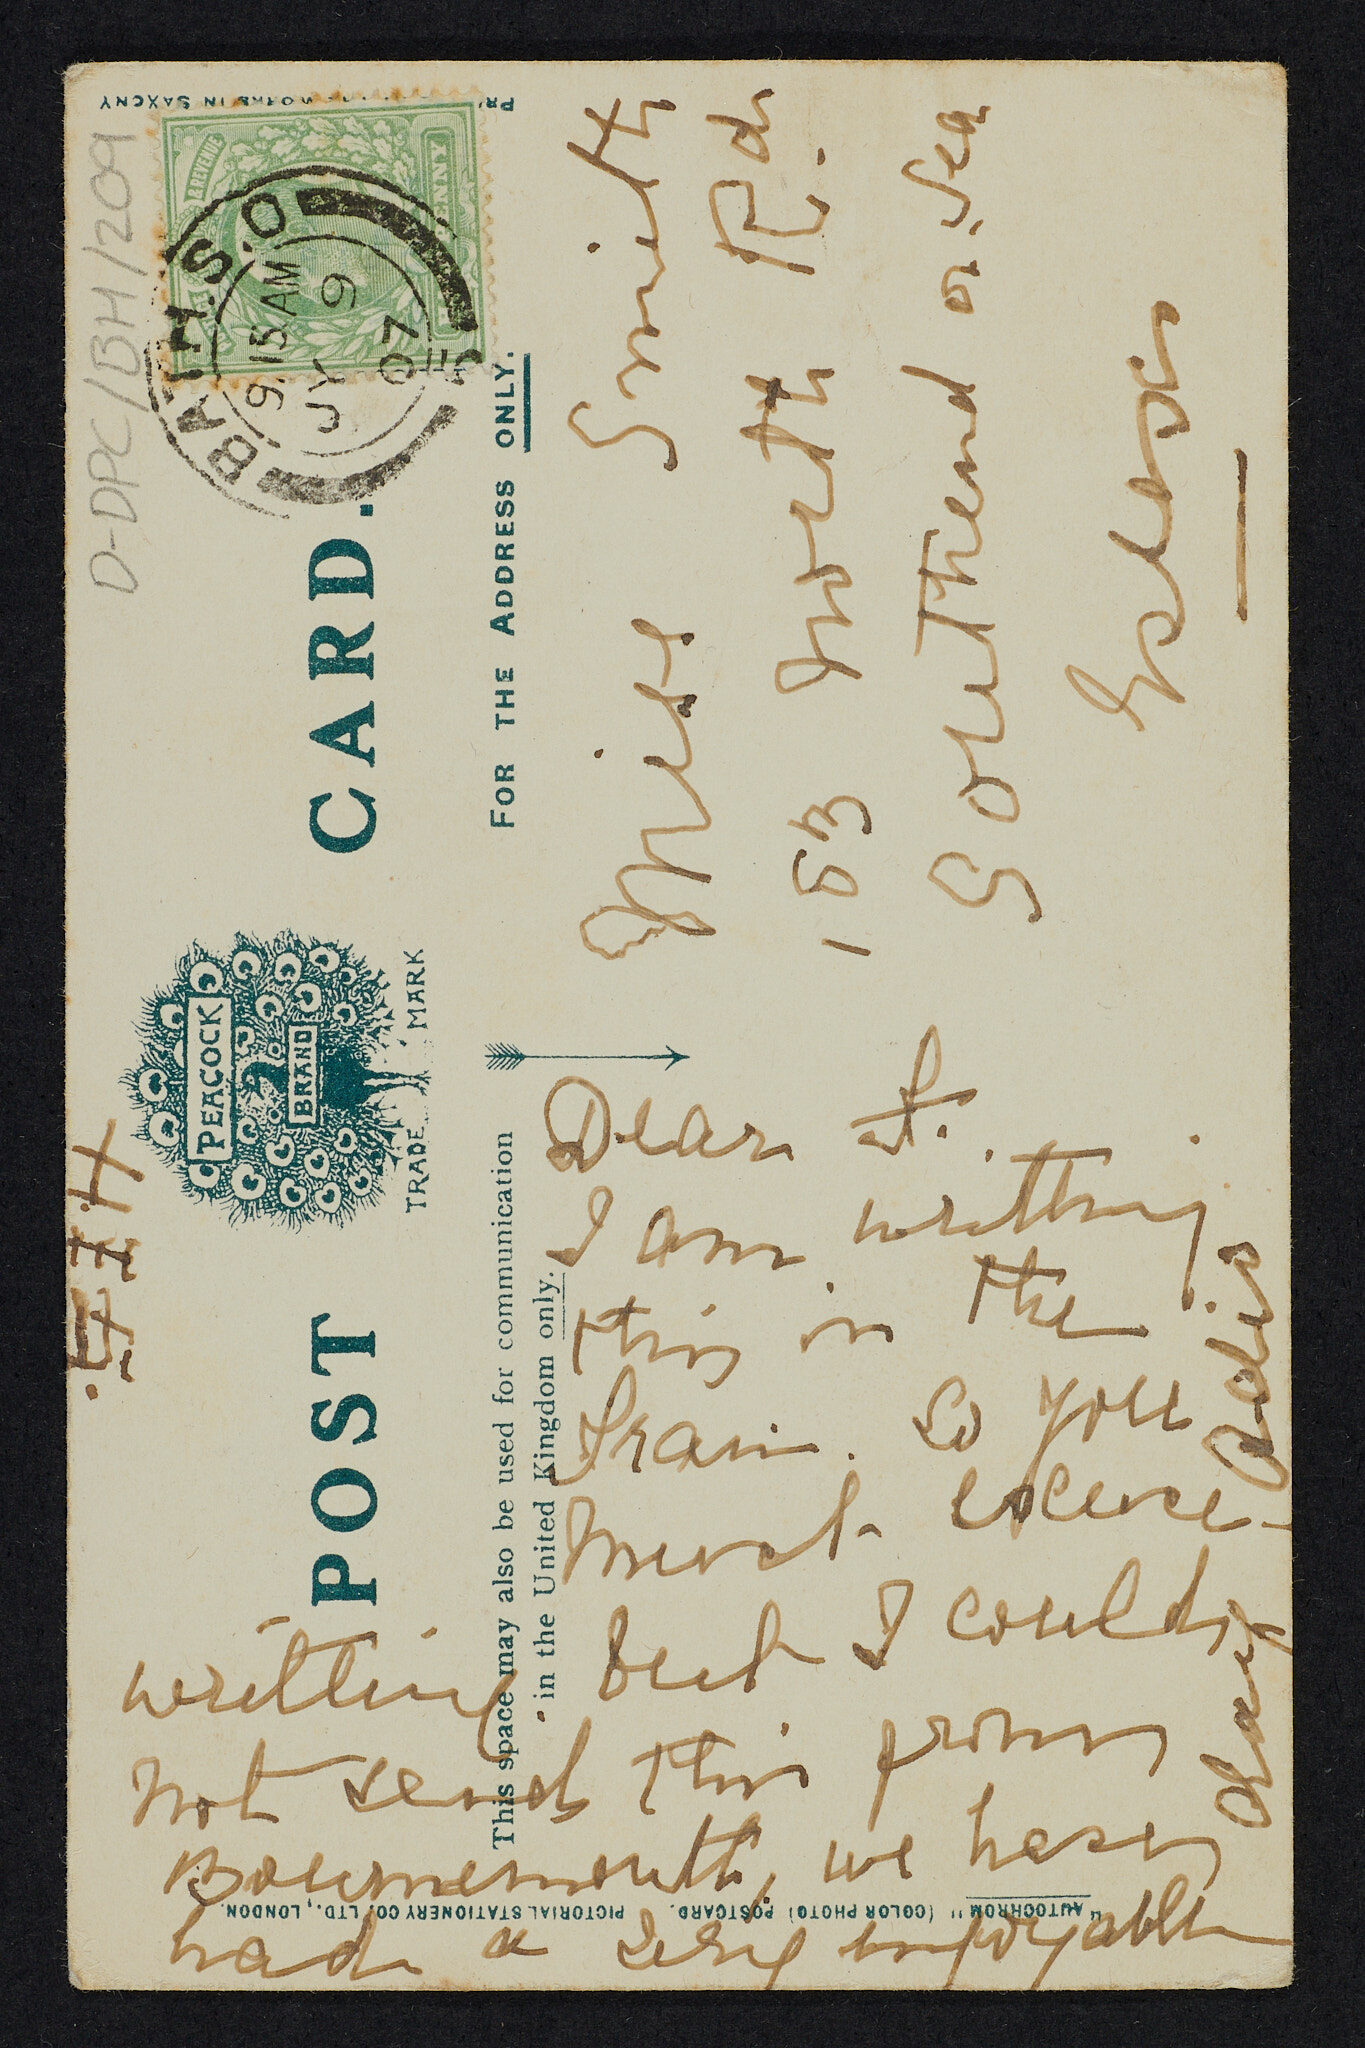 D-DPC/BH/209
PEACOCK
BRAND
TRADE MARK
POST CARD.
This space may also be used for communication
in the United Kingdom only.
FOR THE ADDRESS ONLY.
BATH.S.O
9.15 AM
JY 9
07
5
REVENUE
PENNY
WORKS IN SAXONY
"AUTOCHROM" (COLOR PHOTO) POSTCARD. PICTORIAL STATIONERY CO., LTD., LONDON.
Dear F.
I am writting
this in the
Train. So you
must excuse
writting. but I could
not send this from
Bournemouth, we have
had a very enjoyable
days
Miss Smith
153 North Rd.
Southend on Sea
Essex